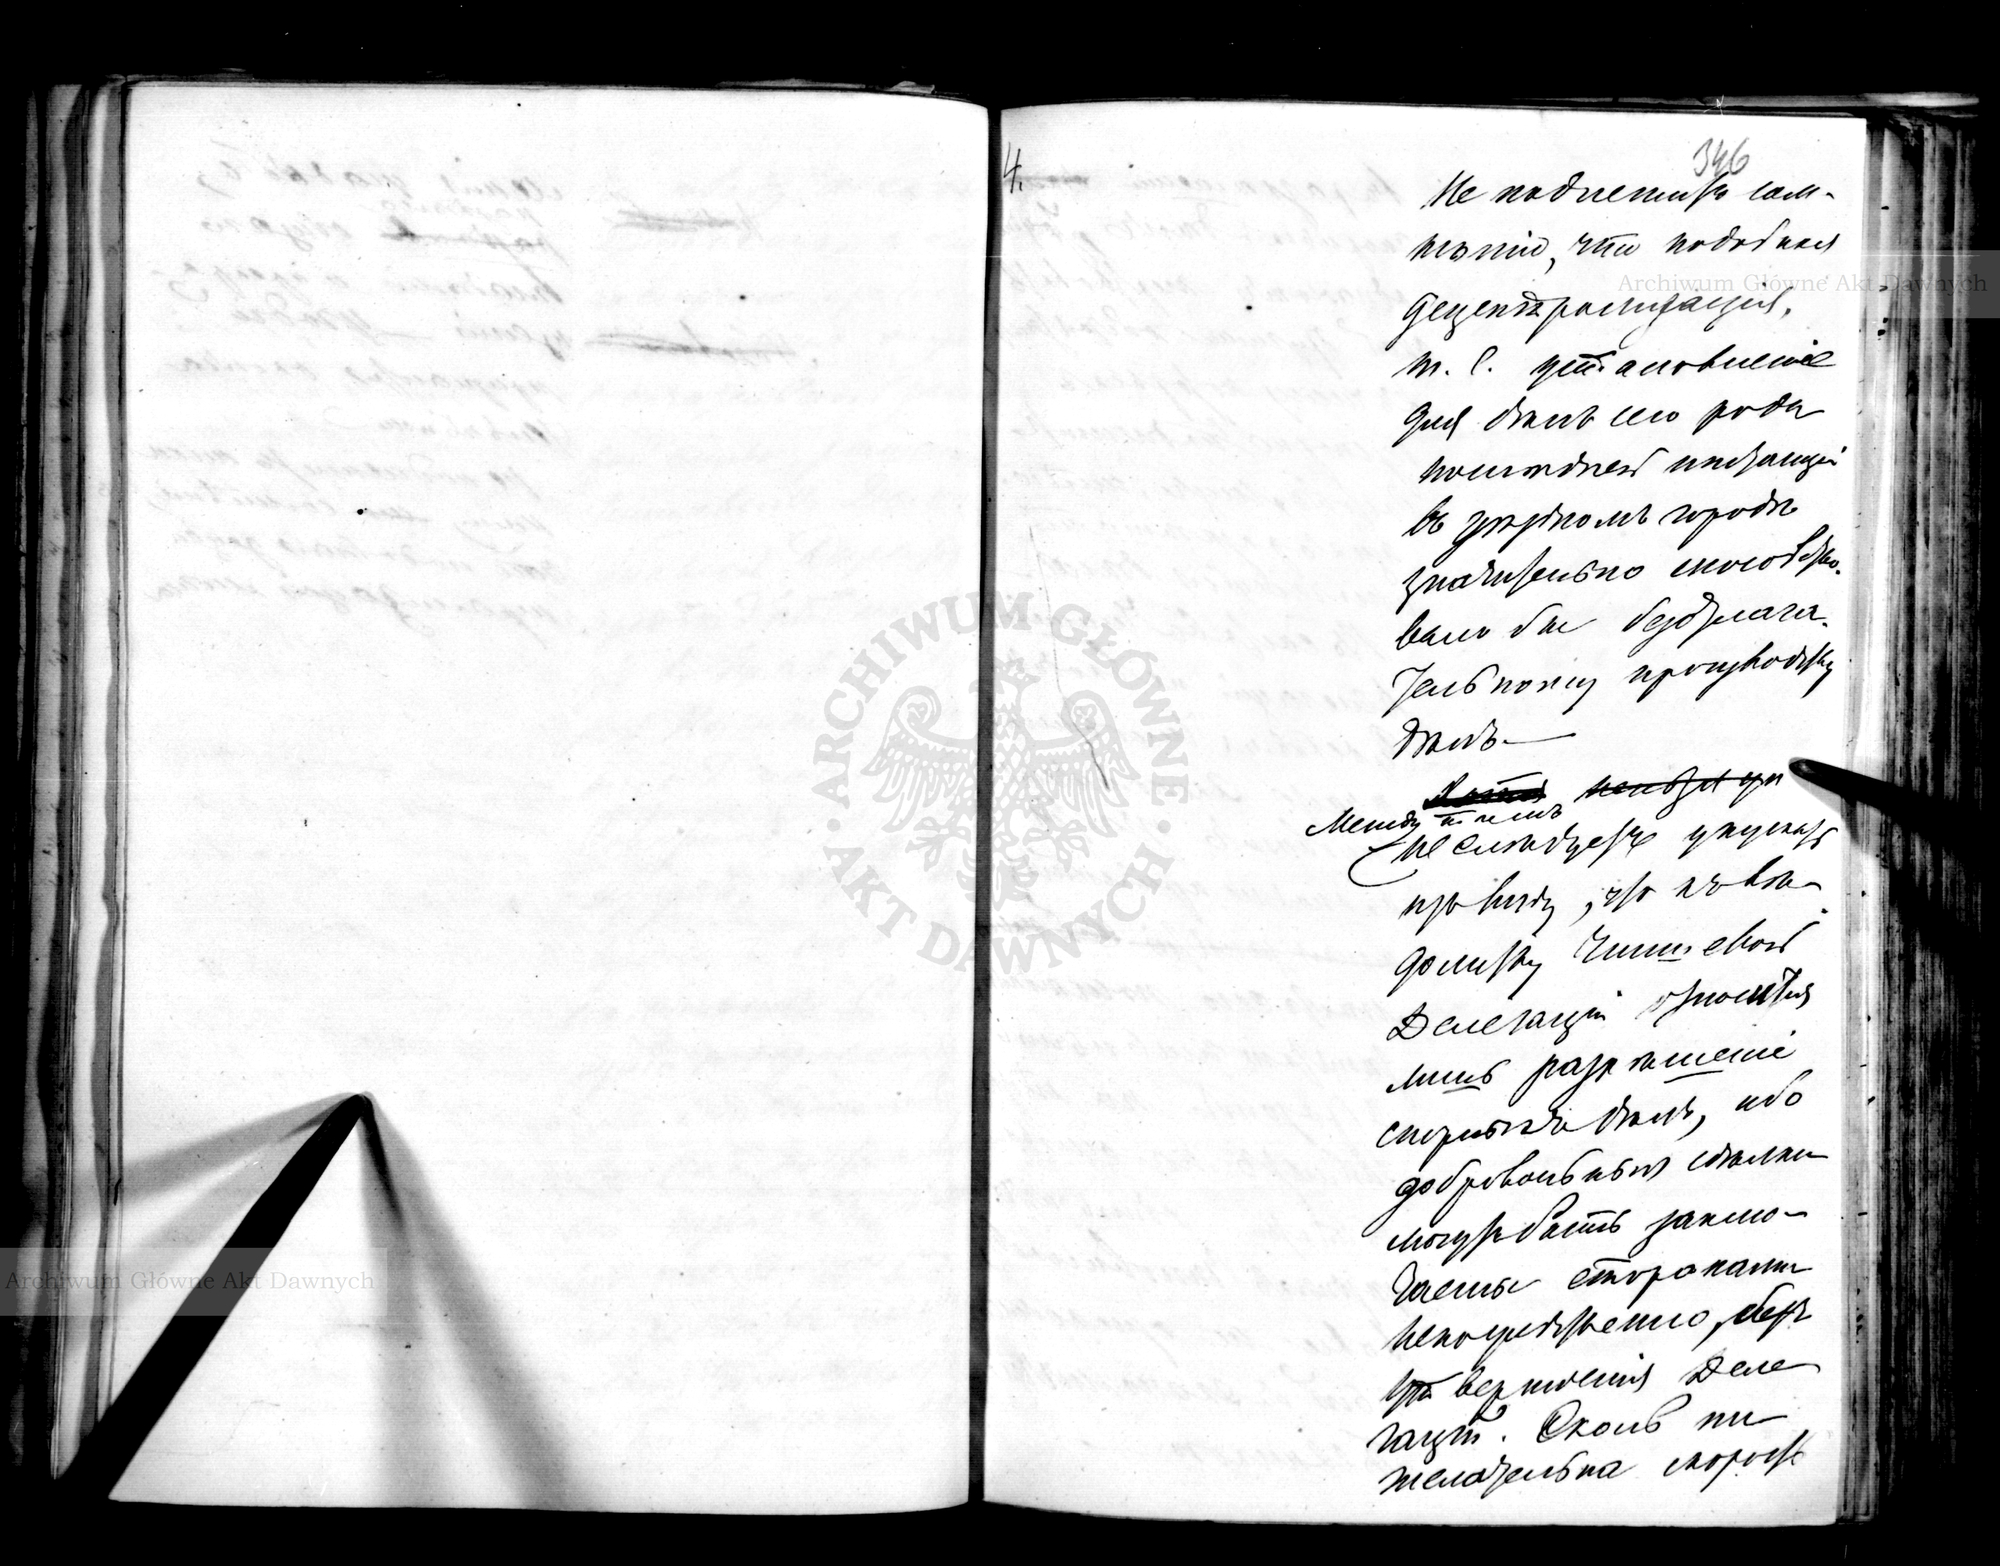 4.
346
Не подлежитъ сом-
нѣнію, что подобная
децентрализація,
т. е. установленіе
для дѣлъ сего рода
послѣдней инстанціи
въ уѣздномъ городѣ
значительно способство-
вало бы безотлага-
тельному производству
дѣлъ.—
Хотя нельзя уп
Между тѣмъ
не слѣдуетъ упускать
изъ виду, что къ вѣ-
домству Чиншевой
Делегаціи относится
лишь разрѣшеніе
спорныхъ дѣлъ, ибо
добровольныя сдѣлки
могутъ быть заклю-
чаемы сторонами
непосредственно, безъ
утвержденія Деле-
гаціи. Сколь ни
желательна скорость
ARCHIWUM GŁÓWNE
AKT DAWNYCH
Archiwum Główne Akt Dawnych
Archiwum Główne Akt Dawnych